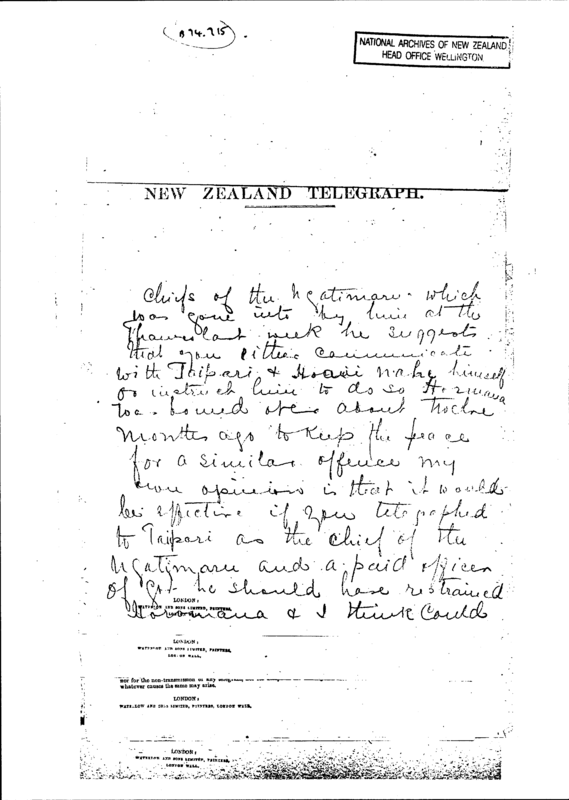 A 74.715
NATIONAL ARCHIVES OF NEW ZEALAND
HEAD OFFICE WELLINGTON
NEW ZEALAND TELEGRAPH.
Chiefs of the Ngatimaru - which
was gone into by him at the
Thames last week he suggests
that you either communicate
with Taipari & Hoani Nahe himself
or instruct him to do so Horomana
was bound over about twelve
months ago to keep the peace
for a similar offence my
own opinion is that it would
be effective if you telegraphed
to Taipari as the chief of the
Ngatimaru and a paid officer
of Govt he should have restrained
LONDON:
WATERLOW AND SONS LIMITED, PRINTERS,
Horomana & I think could
LONDON:
WATERLOW AND SONS LIMITED, PRINTERS,
LONDON WALL.
nor for the non-transmission or any
whatever causes the same may arise.
LONDON:
WATERLOW AND SONS LIMITED, PRINTERS, LONDON WALL.
LONDON:
WATERLOW AND SONS LIMITED, PRINTERS,
LONDON WALL.